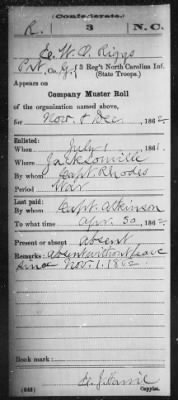 (Confederate.)
R. 3 N.C.
E. W. Riggs
Pvt, Co. G, 3 Reg't North Carolina Inf.
(State Troops.)
Appears on
Company Muster Roll
of the organization named above,
for Nov. & Dec., 1862
Enlisted:
When July 1, 1861.
Where Jacksonville
By whom Capt. Rhodes
Period War
Last paid:
By whom Capt. Atkinson
To what time Apr. 30, 1862
Present or absent absent
Remarks: absent without leave
since Nov. 1. 1862
Book mark:
(642) Copyist.